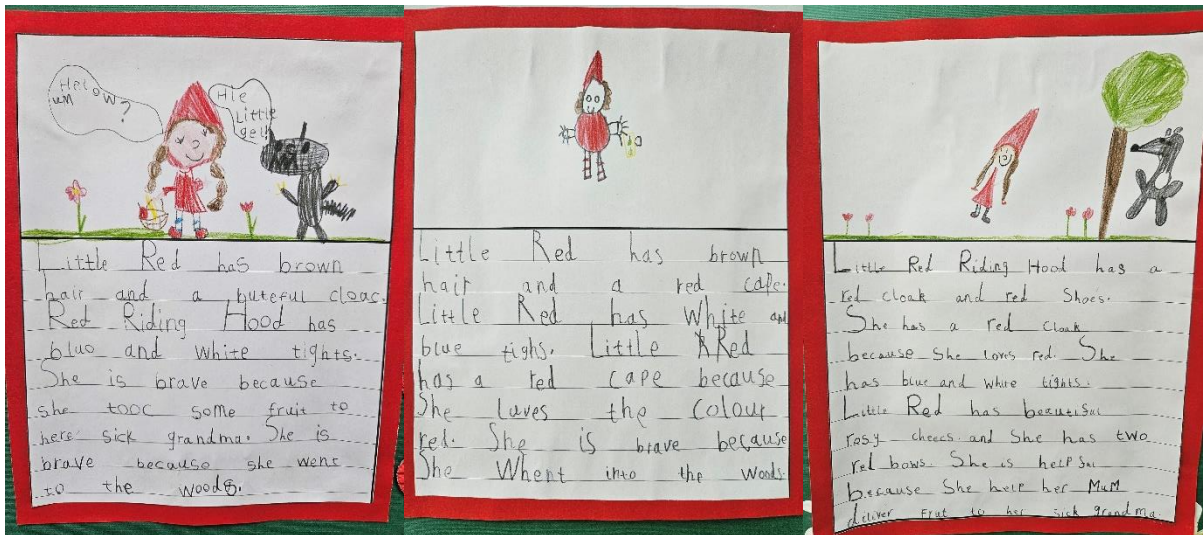 Helow
um
?
Hie
Little
gel!
Little Red has brown
hair and a buteful cloac.
Red Riding Hood has
bluo and white tights.
She is brave because
she tooc some fruit to
here sick grandma. She is
brave because she wens
to the woods.
Little Red has brown
hair and a red cape.
Little Red has White and
blue tighs. Little Red
has a red cape because
She luves the colour
red. She is brave because
She Whent into the woods.
Little Red Riding Hood has a
red cloak and red Shoes.
She has a red cloak
because She loves red. She
has blue and white tights.
Little Red has beautiful
rosy cheecs and She has two
red bows. She is helpful
because She help her Mum
deliver frut to her sick grandma.